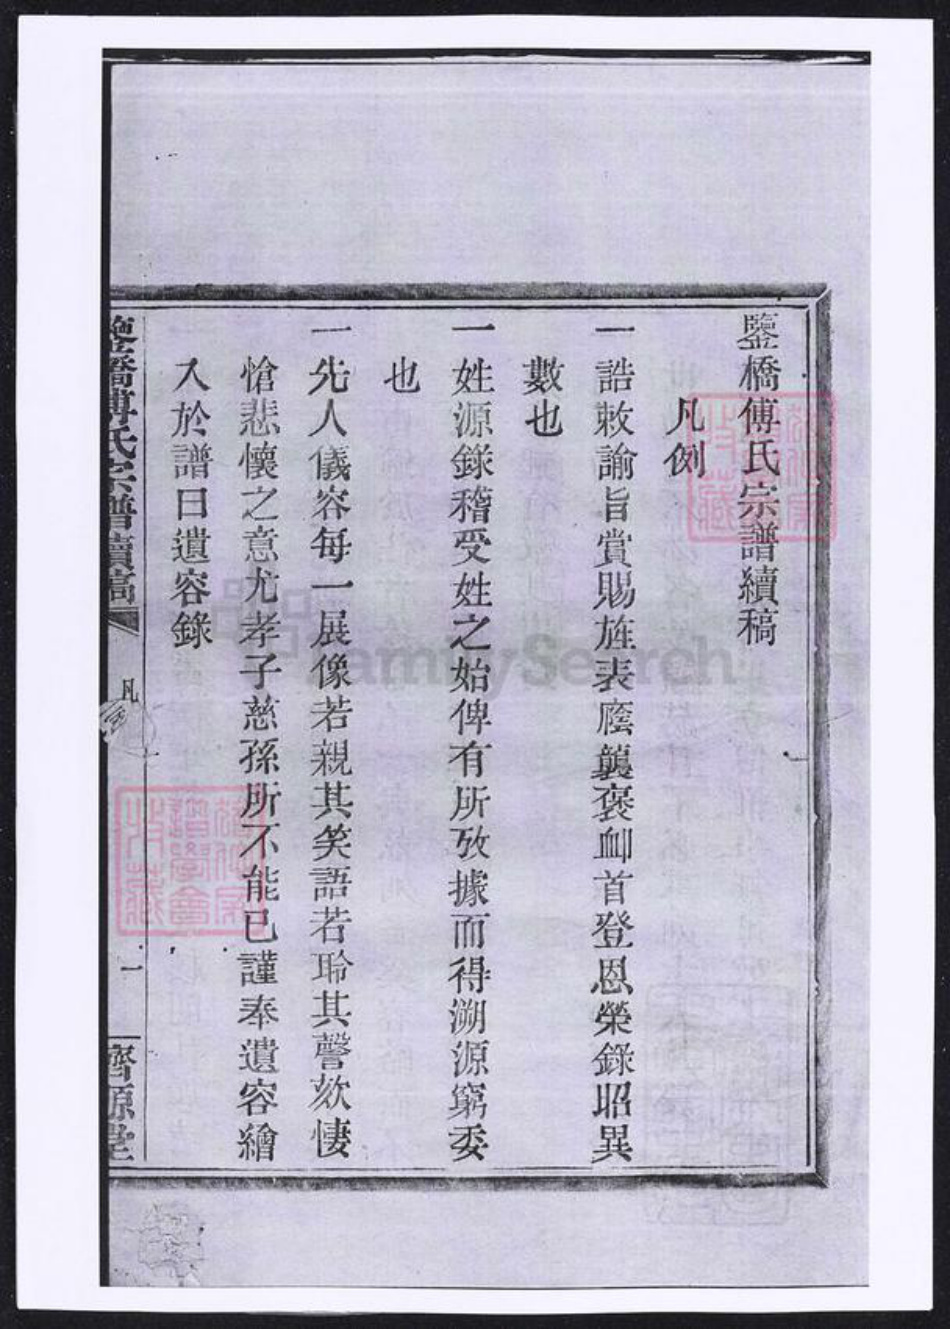 鑒橋傅氏宗譜續稿
凡例
一誥敕諭旨賞賜旌表廕襲褒卹首登恩榮錄昭異
數也
一姓源錄稽受姓之始俾有所攷據而得溯源窮委
也
一先人儀容每一展像若親其笑語若聆其謦欬悽
愴悲懷之意尤孝子慈孫所不能已謹奉遺容繪
入於譜曰遺容錄
鑒橋傅氏宗譜續稿
凡
一
濟源堂
FamilySearch